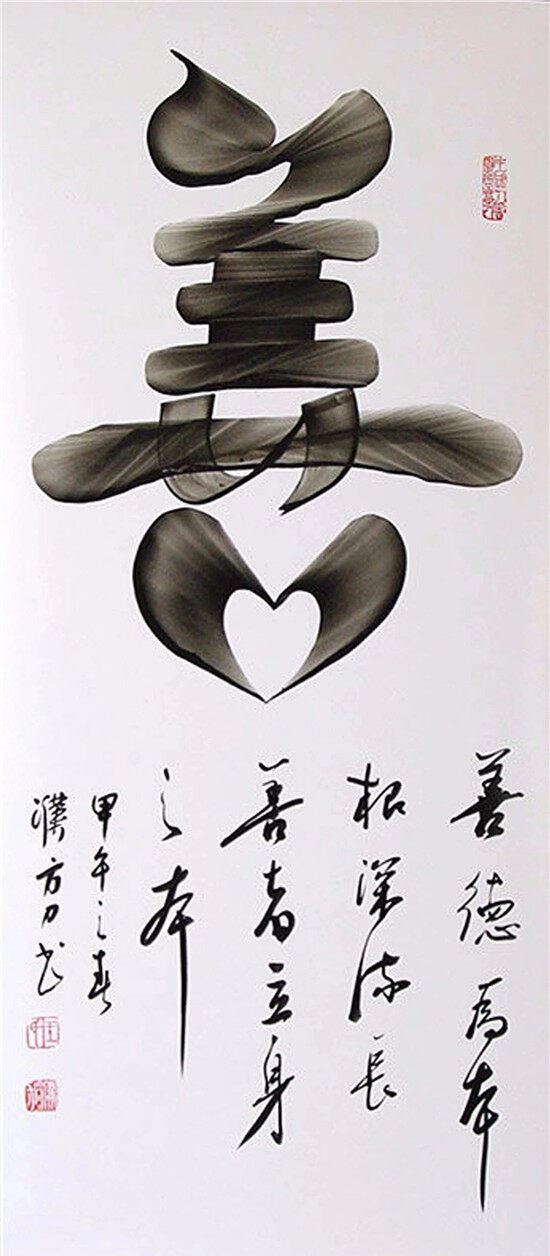 善
善德為本
根深流長
善者立身
之本
甲午之春
方刀书